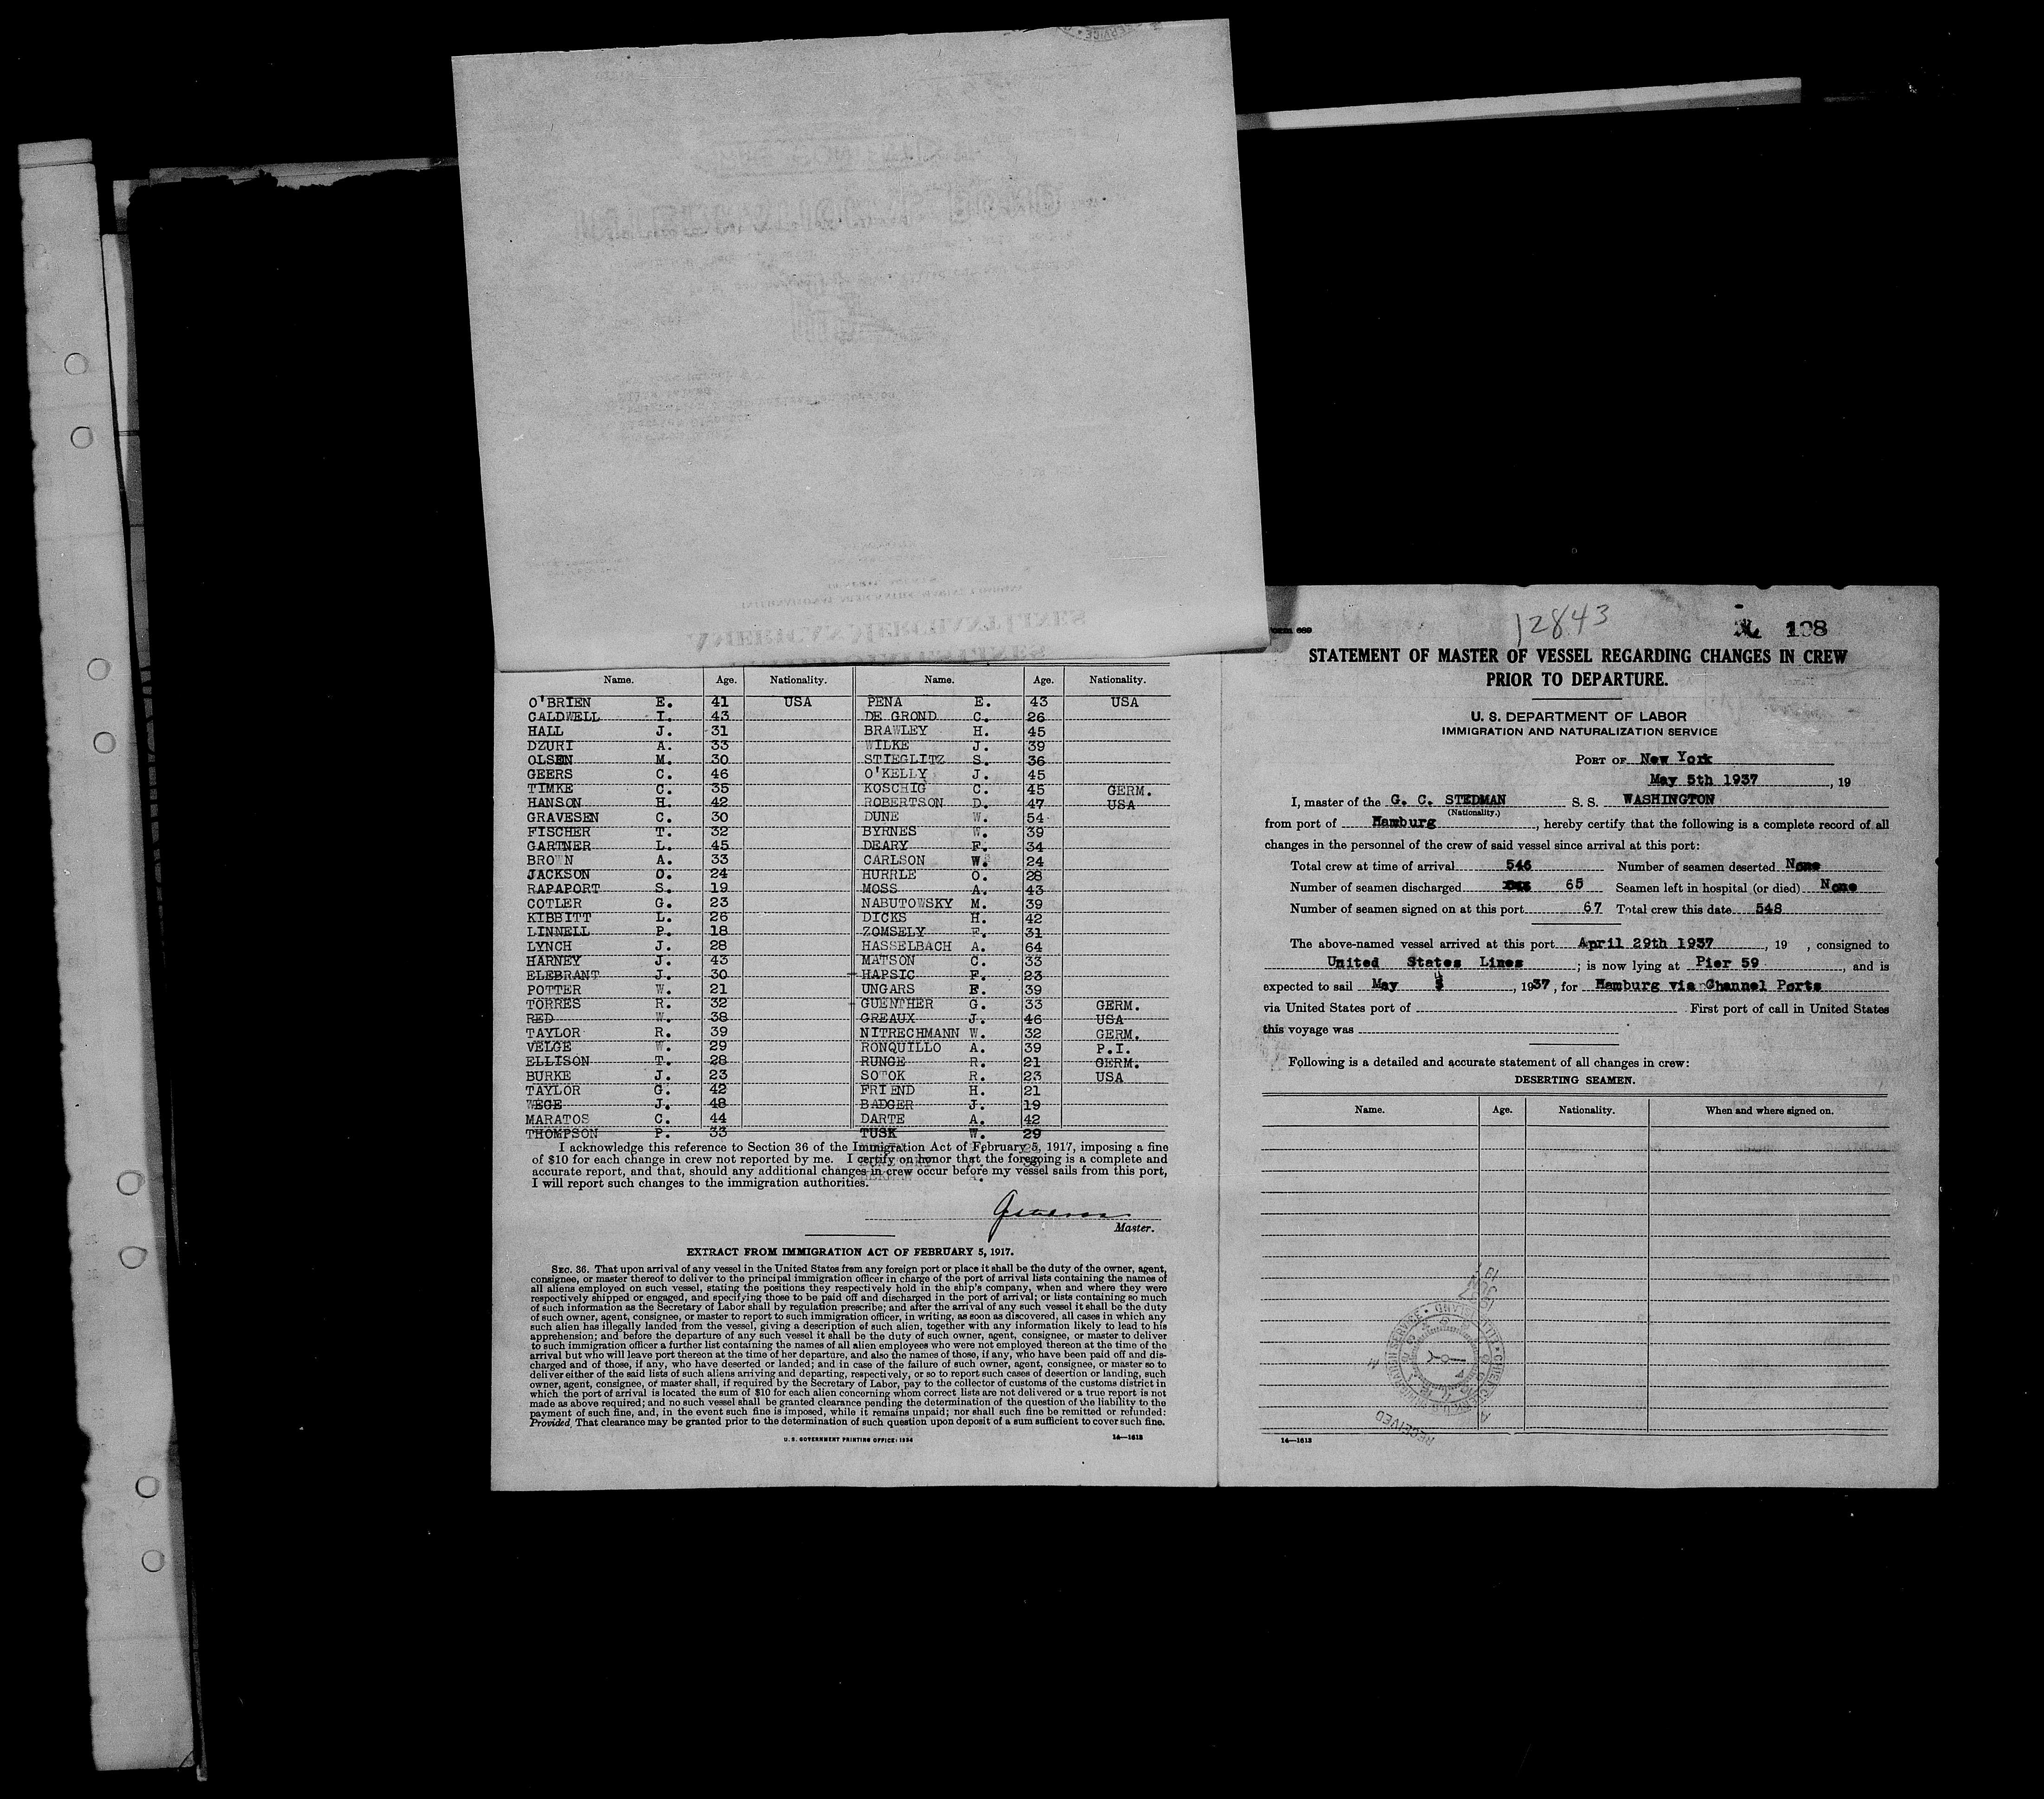 Name. Age. Nationality. Name. Age. Nationality.
O'BRIEN E. 41 USA PENA E. 43 USA
CALDWELL I. 43 DE GROND C. 26
HALL J. 31 BRAWLEY H. 45
DZURI A. 33 WILKE J. 39
OLSEN M. 30 STIEGLITZ S. 36
GEERS C. 46 O'KELLY J. 45
TIMKE C. 35 KOSCHIG C. 45 GERM.
HANSON H. 42 ROBERTSON D. 47 USA
GRAVESEN C. 30 DUNE W. 54
FISCHER T. 32 BYRNES W. 39
GARTNER L. 45 DEARY F. 34
BROWN A. 33 CARLSON W. 24
JACKSON O. 24 HURRLE O. 28
RAPAPORT S. 19 MOSS A. 43
COTLER G. 23 NABUTOWSKY M. 39
KIBBITT L. 26 DICKS H. 42
LINNELL P. 18 ZOMSELY F. 31
LYNCH J. 28 HASSELBACH A. 64
HARNEY J. 43 MATSON C. 33
ELEBRANT J. 30 HAPSIC F. 23
POTTER W. 21 UNGARS F. 39
TORRES R. 32 GUENTHER G. 33 GERM.
RED W. 38 GREAUX J. 46 USA
TAYLOR R. 39 NITRECHMANN W. 32 GERM.
VELGE W. 29 RONQUILLO A. 39 P.I.
ELLISON T. 28 RUNGE R. 21 GERM.
BURKE J. 23 SOTOK R. 23 USA
TAYLOR G. 42 FRIEND H. 21
WEGE J. 48 BADGER J. 19
MARATOS C. 44 DARTE A. 42
THOMPSON P. 33 TUSK W. 29
I acknowledge this reference to Section 36 of the Immigration Act of February 5, 1917, imposing a fine
of $10 for each change in crew not reported by me. I certify on honor that the foregoing is a complete and
accurate report, and that, should any additional changes in crew occur before my vessel sails from this port,
I will report such changes to the immigration authorities.
Master.
EXTRACT FROM IMMIGRATION ACT OF FEBRUARY 5, 1917.
SEC. 36. That upon arrival of any vessel in the United States from any foreign port or place it shall be the duty of the owner, agent,
consignee, or master thereof to deliver to the principal immigration officer in charge of the port of arrival lists containing the names of
all aliens employed on such vessel, stating the positions they respectively hold in the ship's company, when and where they were
respectively shipped or engaged, and specifying those to be paid off and discharged in the port of arrival; or lists containing so much
of such information as the Secretary of Labor shall by regulation prescribe; and after the arrival of any such vessel it shall be the duty
of such owner, agent, consignee, or master to report to such immigration officer, in writing, as soon as discovered, all cases in which any
such alien has illegally landed from the vessel, giving a description of such alien, together with any information likely to lead to his
apprehension; and before the departure of any such vessel it shall be the duty of such owner, agent, consignee, or master to deliver
to such immigration officer a further list containing the names of all alien employees who were not employed thereon at the time of the
arrival but who will leave port thereon at the time of her departure, and also the names of those, if any, who have been paid off and dis-
charged and of those, if any, who have deserted or landed; and in case of the failure of such owner, agent, consignee, or master so to
deliver either of the said lists of such aliens arriving and departing, respectively, or so to report such cases of desertion or landing, such
owner, agent, consignee, or master shall, if required by the Secretary of Labor, pay to the collector of customs of the customs district in
which the port of arrival is located the sum of $10 for each alien concerning whom correct lists are not delivered or a true report is not
made as above required; and no such vessel shall be granted clearance pending the determination of the question of the liability to the
payment of such fine, and, in the event such fine is imposed, while it remains unpaid; nor shall such fine be remitted or refunded:
Provided, That clearance may be granted prior to the determination of such question upon deposit of a sum sufficient to cover such fine.
U. S. GOVERNMENT PRINTING OFFICE: 1934 14—1613
Form 689 12843 108
STATEMENT OF MASTER OF VESSEL REGARDING CHANGES IN CREW
PRIOR TO DEPARTURE.
U. S. DEPARTMENT OF LABOR
IMMIGRATION AND NATURALIZATION SERVICE
PORT OF New York
May 5th 1937, 19
I, master of the G. C. STEDMAN S. S. WASHINGTON
(Nationality.)
from port of Hamburg, hereby certify that the following is a complete record of all
changes in the personnel of the crew of said vessel since arrival at this port:
Total crew at time of arrival 546 Number of seamen deserted None
Number of seamen discharged 65 Seamen left in hospital (or died) None
Number of seamen signed on at this port 67 Total crew this date 548
The above-named vessel arrived at this port April 29th 1937, 19 , consigned to
United States Lines; is now lying at Pier 59, and is
expected to sail May , 1937, for Hamburg via Channel Ports
via United States port of . First port of call in United States
this voyage was
Following is a detailed and accurate statement of all changes in crew:
DESERTING SEAMEN.
Name. Age. Nationality. When and where signed on.
RECEIVED
14—1613